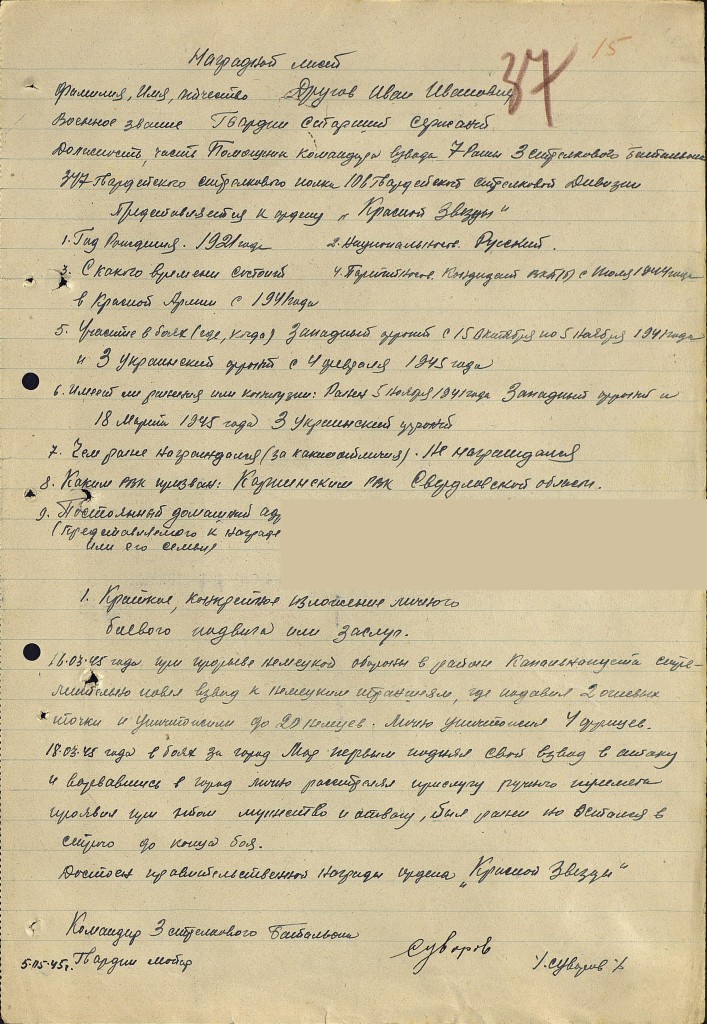 15
37
Наградной лист
Фамилия, Имя, Отчество Другов Иван Иванович
Военное звание Гвардии Старший Сержант
Должность, часть Помощник командира взвода 7 Роты 3 стрелкового Батальона
347 Гвардейского стрелкового полка 106 Гвардейской стрелковой Дивизии
Представляется к ордену „Красной Звезды"
1. Год Рождения. 1921 года 2. Национальность. Русский.
3. С какого времени состоит 4. Партийность. Кандидат ВКП(б) с Июля 1944 года
в Красной Армии с 1941 года
5. Участие в боях (где, когда) Западный фронт с 15 Октября по 5 Ноября 1941 года
и 3 Украинский фронт с 4 февраля 1945 года
6. Имеет ли ранения или контузии: Ранен 5 Ноября 1941 года Западный фронт и
18 Марта 1945 года 3 Украинский фронт
7. Чем ранее награждался (за какие отличия). Не награждался
8. Каким РВК призван: РВК Свердловской области.
9. Постоянный домашний адр
(Представляемого к награде
или его семьи
1. Краткое, конкретное изложение личного
боевого подвига или заслуг.
16.03.45 года при прорыве немецкой обороны в районе стре-
мительно повел взвод к немецким траншеям, где подавил 2 огневых
точки и уничтожили до 20 немцев. Лично уничтожил 4 фрицев.
18.03.45 года в боях за город Мор первым поднял свой взвод в атаку
и ворвавшись в город лично расстрелял прислугу ручного пулемета
проявил при этом мужество и отвагу, был ранен но остался в
строю до конца боя.
Достоин правительственной награды ордена „Красной Звезды"
Командир 3 стрелкового Батальона
5.05.45г. Гвардии майор Суворов /.Суворов./